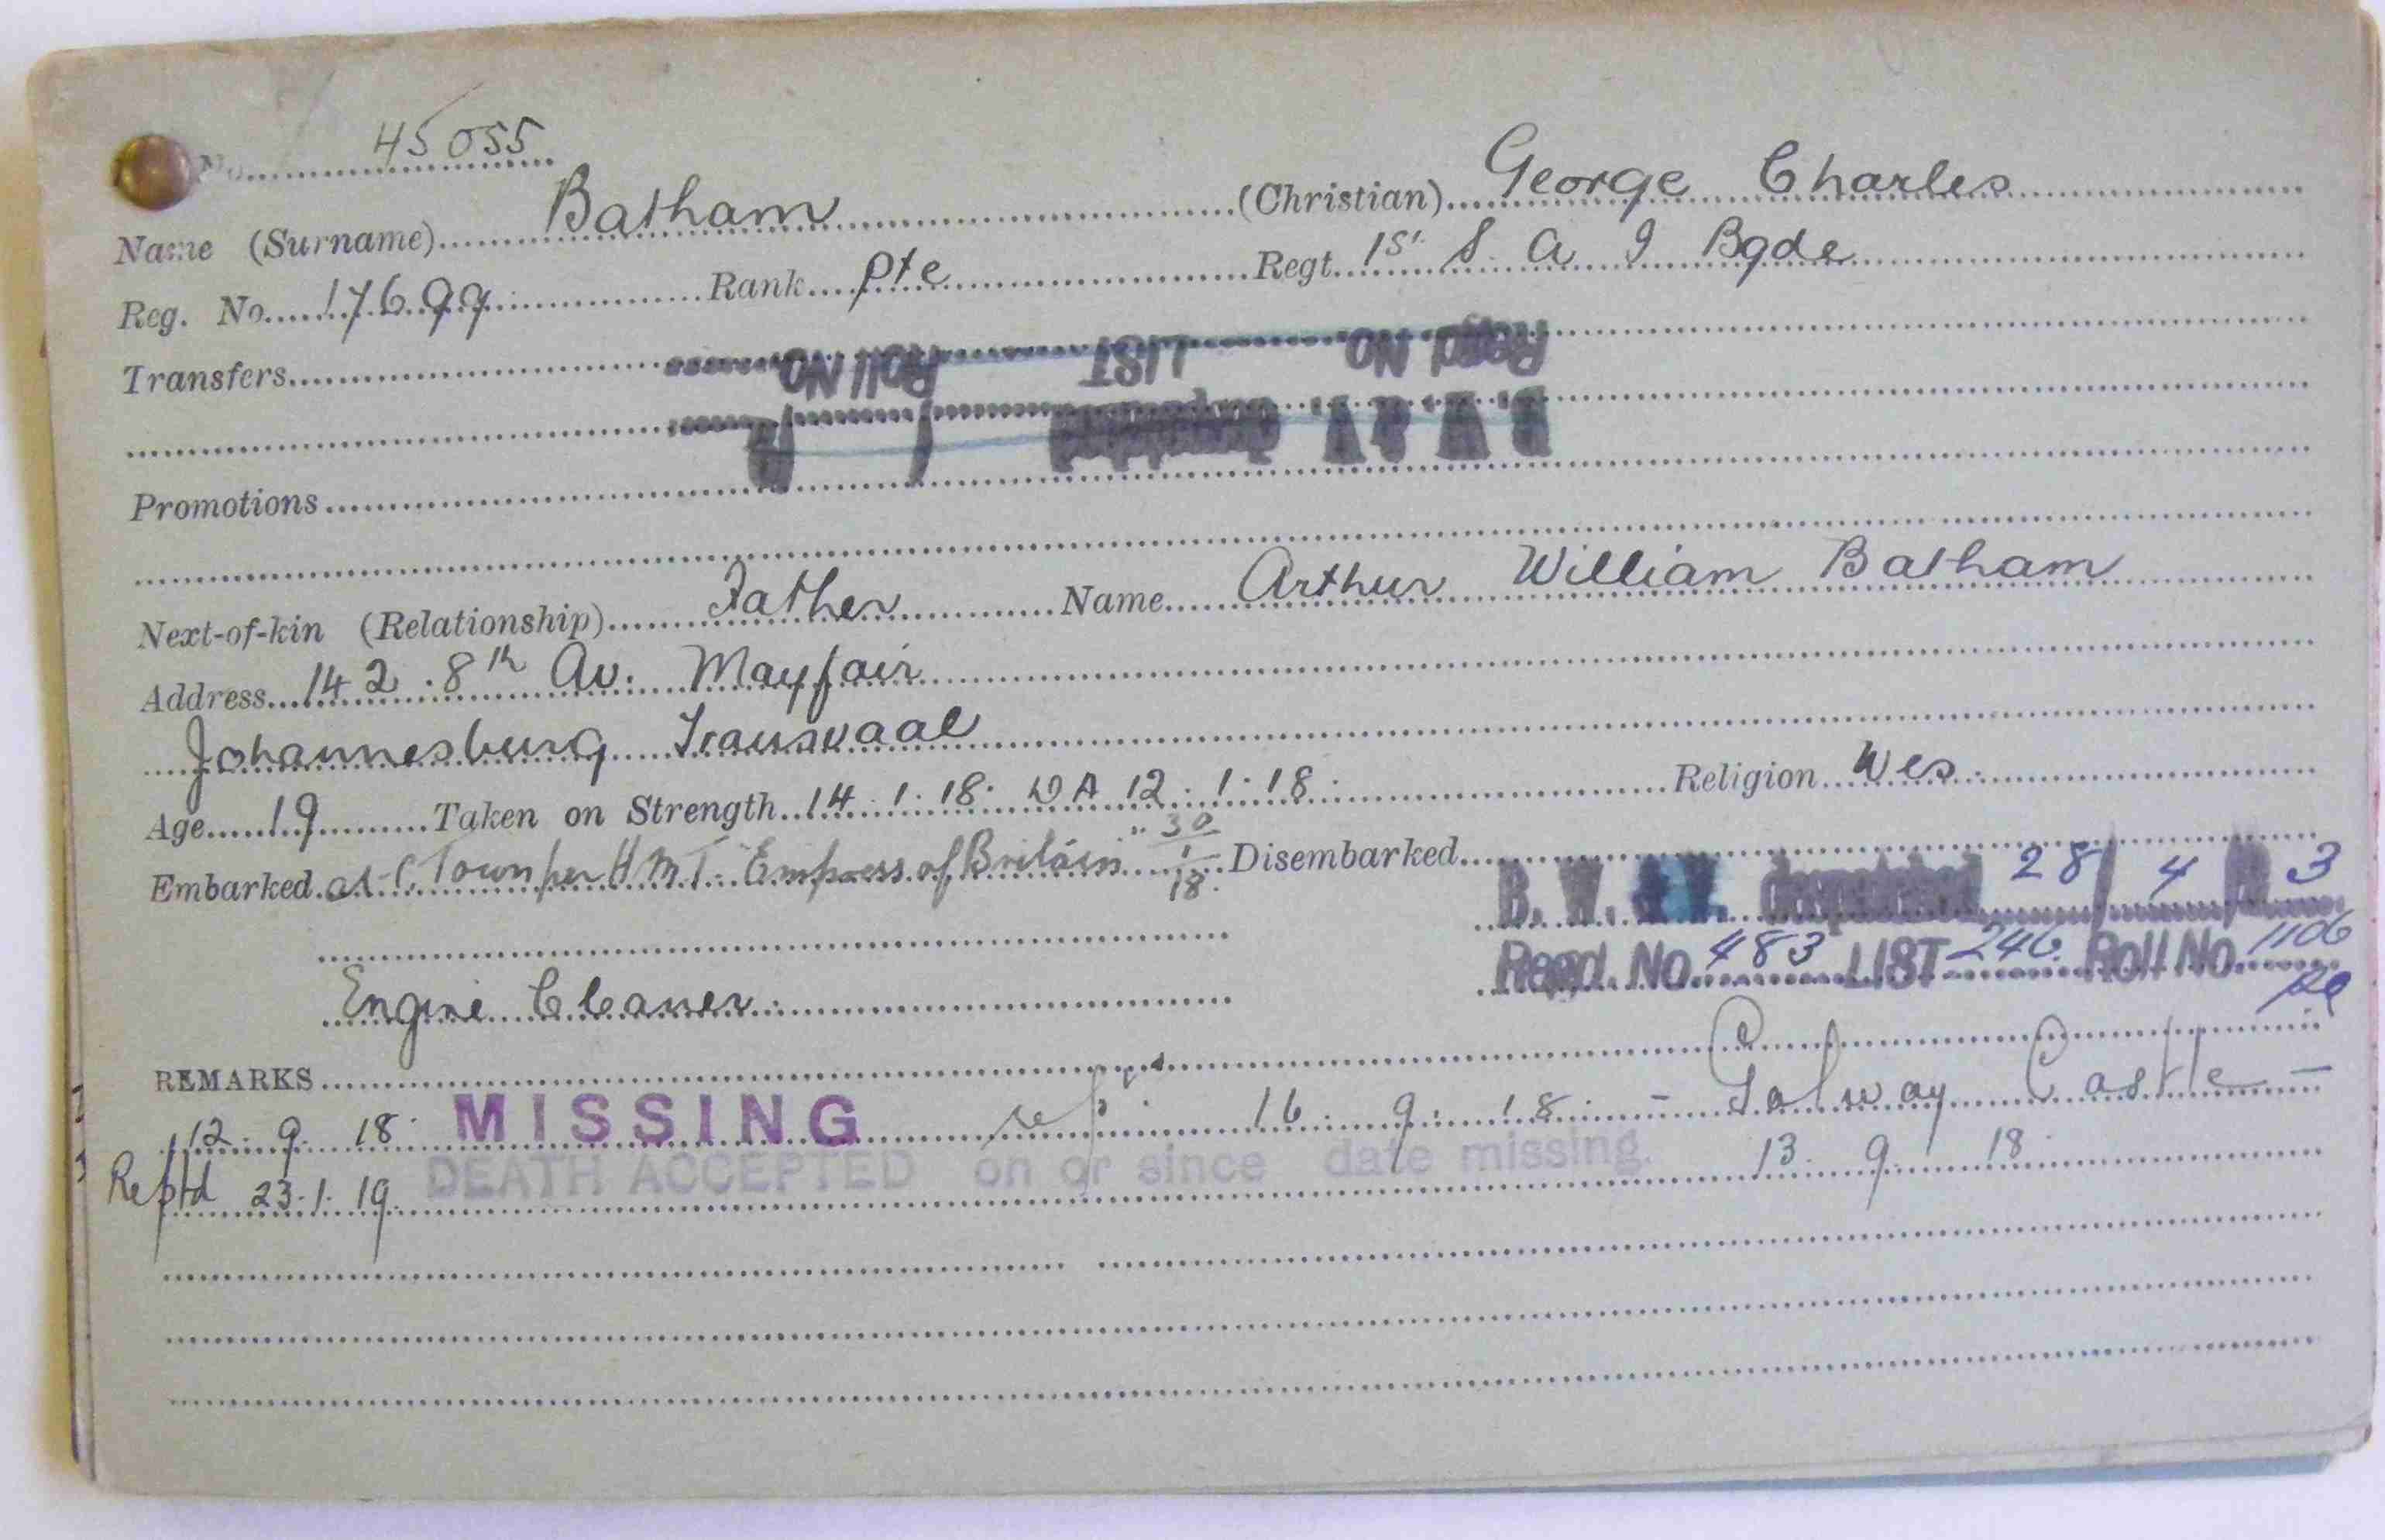 No. 45055
Name (Surname) Batham (Christian) George Charles
Reg. No. 17699 Rank pte Regt. 1st S A I Bgde
Transfers
Regd. No. LIST Roll No.
B. W. & V. despatched / /
Promotions
Next-of-kin (Relationship) Father Name Arthur William Batham
Address 142 8th Av. Mayfair
Johannesburg Transvaal
Age 19 Taken on Strength 14.1.18. DA 12.1.18. Religion Wes.
Embarked at C. Town per H M T. "Empress of Britain" 30/1/18. Disembarked
B. W. & V. despatched 28/4/ 3
Regd. No. 483 LIST 246 Roll No. 1106
Engine Cleaner.
REMARKS
12.9.18. MISSING rep. 16.9.18. - Galway Castle -
Reptd 23.1.19. DEATH ACCEPTED on or since date missing. 13.9.18.